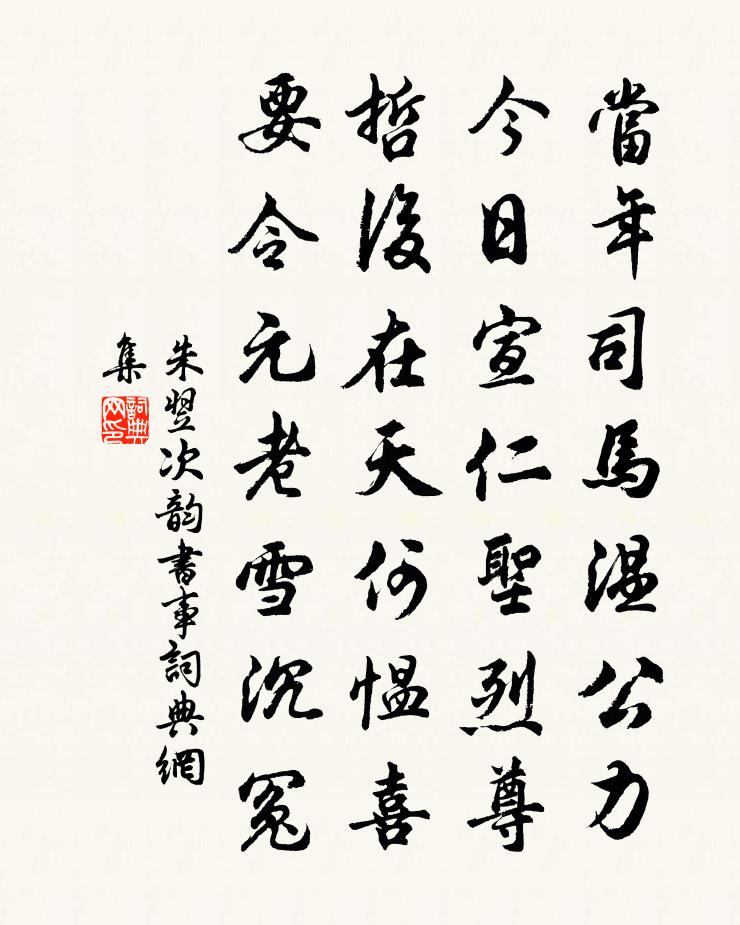 當年司馬溫公力
今日宣仁聖烈尊
哲後在天何愠喜
要令元老雪沉冤
朱翌次韵書事詞典網
集
詞典網印